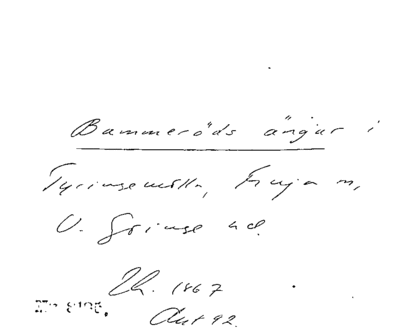 Bammeröds ängar i
Tyringemölla, Finja m,
V. Göinge hd.
Th. 1867
Ant 92.